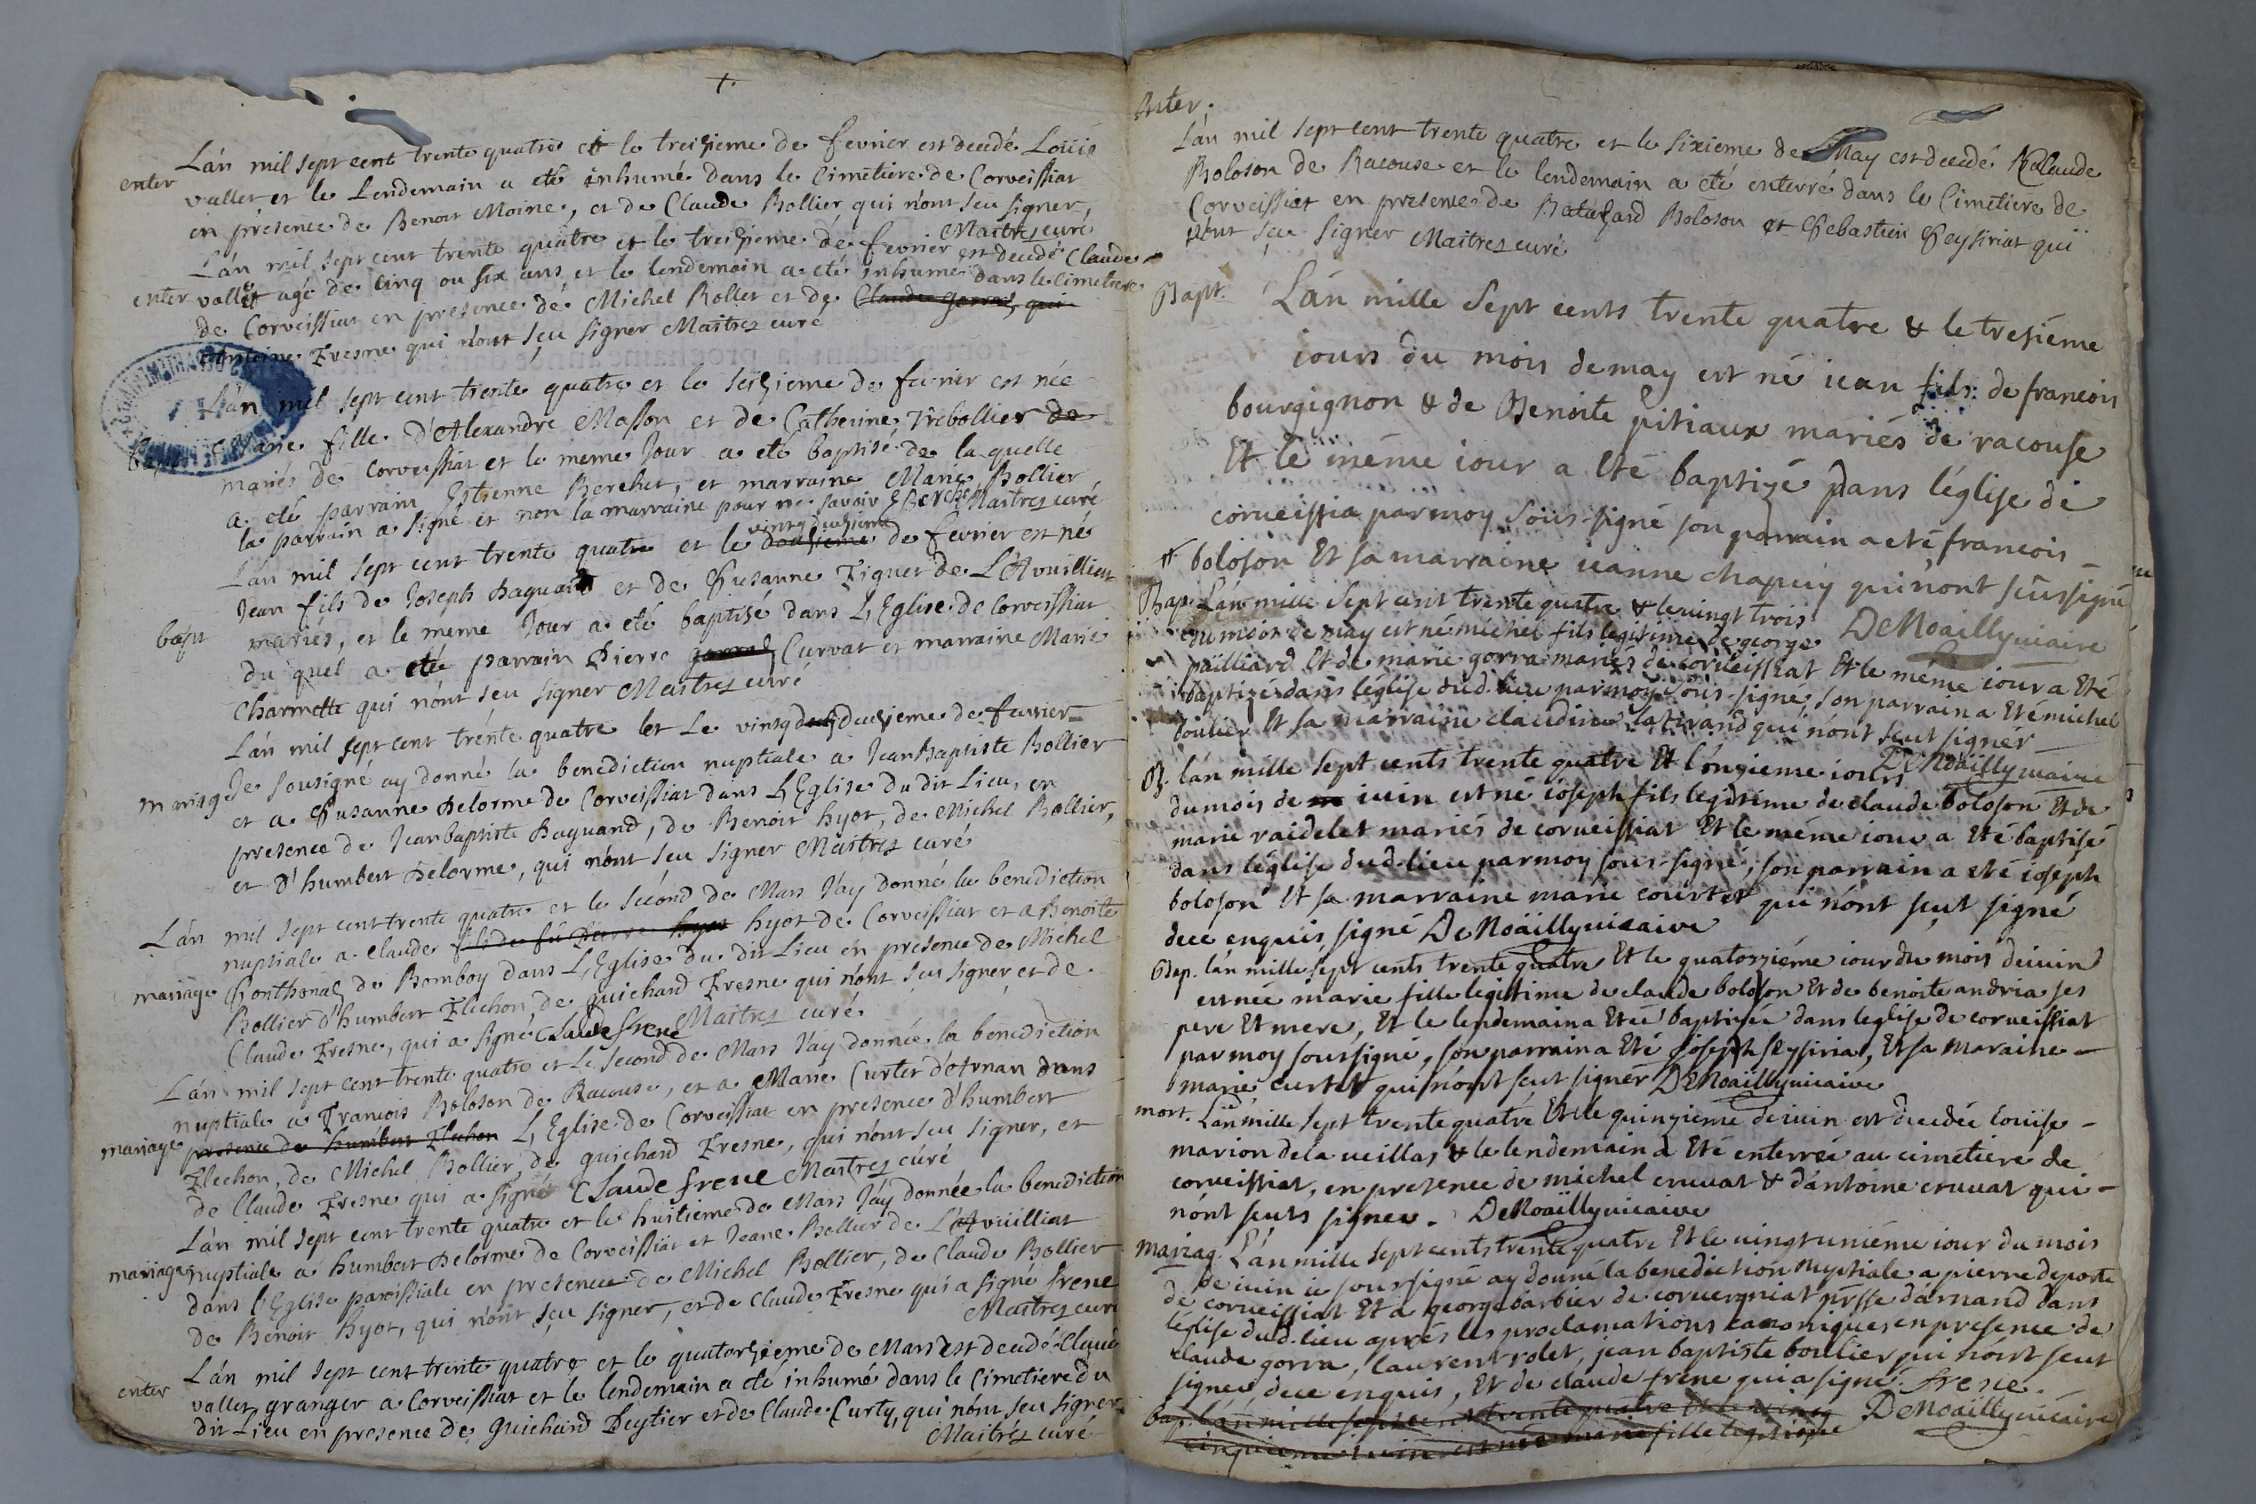 Lán mil sept cent trente quatre et le treizieme de fevrier est decedé Loüis
enter vallet et le Lendemain a eté inhumé dans le Cimetiere de Corveissiat
en présence de Benoit Moine, et de Claude Bollier qui n'ont seu signer,
Maitres curé
Lán mil sept cent trente quatre et le treizieme de fevrier est decedé Claude
enter vallet agé de cinq ou six ans et le lendemain a eté inhumé dans le Cimetiere
de Corveissiat en presence de Michel Rollet et de Claude gorraz, qui
Antoine Fresne qui n'ont seu signer Maitres curé
Lán mil sept cent trente quatre et le seizieme de fevrier est née
bapt Marie fille d'Alexandre Masson et de Catherine Trebollier de
mariés de Corveissiat et le meme Jour a eté baptisé de la quelle
a eté parrain Estienne Berchet, et marraine Marie Bollier
la parrain a signé et non la marraine pour ne savoir E Berchet Maitres curé
Lán mil sept cent trente quatre et le vintg deuzieme de fevrier est né
Jean fils de Joseph Baguand et de Susanne Figuet de L'Avuilliat
bapt mariés, et le même Jour a eté baptisé dans L'Eglise de Corveissiat
du quel a eté parrain Pierre Curvat et marraine Marie
Charmette qui n'ont seu signer Maitres curé
Lán mil sept cent trente quatre et Le vintg deuzieme de fevrier
mariage Je sousigné ay donné la benediction nuptiale a Jean Baptiste Bollier
et a Susanne Delorme de Corveissiat dans L'Eglise du dit Lieu, en
presence de Jean baptiste Baguand, de Benoit hyot, de Michel Bollier,
et d'humbert Delorme, qui n'ont seu signer Maitres curé
Lán mil sept cent trente quatre et le second de Mars J'ay donné la benediction
nuptiale a Claude fils de fû Pierre hyot hyot de Corveissiat et a Benoite
mariage Chonthonal de Bomboy dans L'Eglise du dit Lieu en presence de Michel
Bollier d'humbert Flechon, de guichard Fresne qui n'ont seu signer et de
Claude Fresne, qui a signé Claude frene Maitres curé
Lán mil sept cent trente quatre et Le second de Mars J'ay donnée la benediction
nuptiale a Francois Boloson de Racouse, et a Marie Curtet d'Arnan dans
mariage presence de humbert Flechon L'Eglise de Corveissiat en presence d'humbert
Flechon, de Michel Bollier, de guichard Fresne, qui n'ont seu signer, et
de Claude Fresne qui a signé Claude frene Maitres curé
Lán mil sept cent trente quatre et le huitieme de Mars J'ay donnée la benediction
mariage nuptiale a humbert Delorme de Corveissiat et Jeane Bollier de L'Avüilliat
dans l'Eglise paroissiale en presence de Michel Bollier, de Claude Bollier
de Benoit hyot, qui n'ont seu signer, et de Claude Fresne qui a signé frene
Maitres curé
Lán mil sept cent trente quatre et le quatorzieme de Mars est decedé Claude
enter vallet, granger a Corveissiat et le lendemain a eté inhumé dans le Cimetiere du
dit Lieu en presence de Guichard Peytier et de Claude Curty, qui n'ont seu signer
Maitres curé
Enter.
Lán mil sept cent trente quatre et le sixieme de May est decedé Claude
Boloson de Racouse et le lendemain a eté enterré dans le Cimetiere de
Corveissiat en presence de Boloson et Sebastien Peysiriat qui
n'ont seu signer Maitres curé
Bapt. Lán mille sept cents trente quatre & le tresiéme
iours du mois de may est né iean fils de francois
bourgignon & de Benoite pitiaux mariés de racouse
Et le même iour a Eté baptizé dans l'église de
corveissia par moy sous-signé son parrain a eté francois
boloson Et sa marraine ieanne chapuiy qui n'ont seu signé
DeNoailly vicaire
Bap. Lán mille sept cent trente quatre & le vingt trois
du mois de may est né michel fils legitime de george
païlliard Et de marie gorra mariés de corveissiat Et le même iour a Eté
baptizé dans l'église dud. lieu par moy sous-signé, son parrain a Eté michel
boulier Et sa marraine claudine qui n'ont seut signér
DeNoailly vicaire
B. lán mille sept cents trente quatre Et l'onzieme iours
du mois de iuin est né ioseph fils legitime de claude boloson Et de
marie raidelet mariés de corveissiat Et le même iour a Eté baptisé
dans l'église dud. lieu par moy sous-signé, son parrain a eté ioseph
boloson Et sa marraine marie courtet qui n'ont seut signé
dece enquis, signé DeNoäilly vicaire
Bap. lán mille sept cents trente quatre Et le quatorziéme iour du mois de iuin
est née marie fille legitime de claude boloson Et de benoite andria ses
pere Et mere, Et le lendemain a Eté baptisée dans leglise de corveissiat
par moy soussigné, son parrain a Eté joseph seysiria, Et sa maraine
marie curtet qui n'ont seut signér DeNoäilly vicaire
mort. Lán mille sept trente quatre Et le quinzieme de iuin est decedée loüise
marion de la veillas & le lendemain a Eté enterrée au cimetiere de
corveissiat, en presence de michel cruvat & d'antoine cruvat qui
n'ónt seuts signer. DeNoäilly vicaire
mariag. L'án mille sept cents trente quatre Et le vingt uniéme iour du mois
de iuin ie soussigné ay donné la benediction nuptiale a pierre deporte
de corveissiat Et a george barbier de corvergniat psse d'arnand dans
léglise dud. lieu aprés les proclamations canoniques en presence de
claude gorra, laurent rolet, jean baptiste boulier qui n'ont seut
signer dece enquis, Et de claude frêne qui a signé. frene.
DeNoäilly vicaire
bap. lán mille sept cents trente quatre Et le vingt
cinquieme iuin est née marie fille legitime